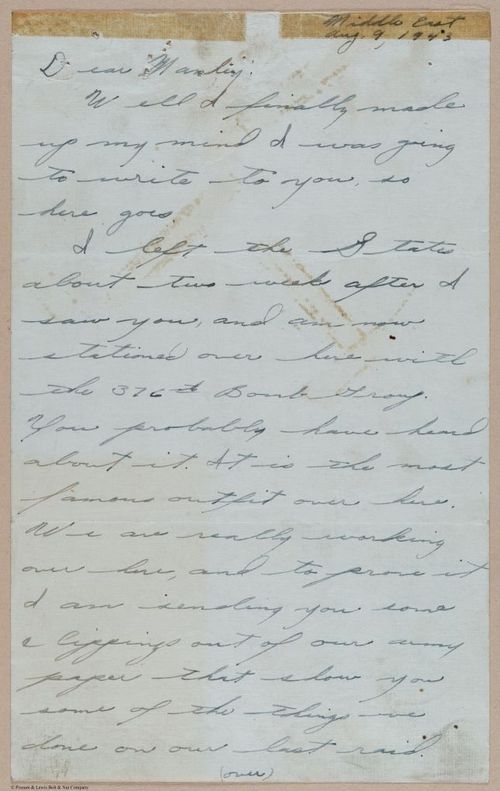 Middle East
Aug. 9, 1943
Dear Manley:
Well I finally made
up my mind I was going
to write to you, so
here goes.
I left the States
about two week after I
saw you, and am now
stationed over here with
the 376th Bomb Group.
You probably have heard
about it. It is the most
famous outfit over here.
We are really working
over here, and to prove it
I am sending you some
clippings out of our army
paper that show you
some of the things we
done on our last raid.
(over)
© Posnet & Lewis Bolt & Nut Company